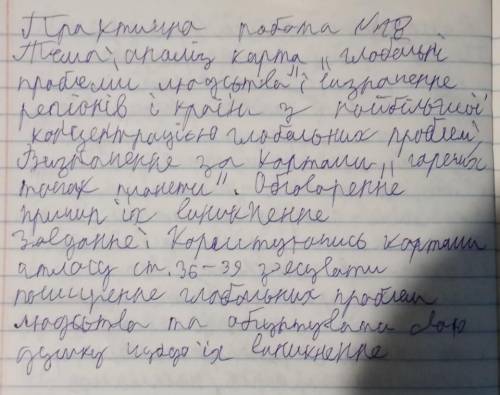 Практична робота №18
Тема: аналіз карта „глобальні
проблеми людства" і визначенне
регіонів і країн з найбільшої
концентрацією глобальних проблем
Визначенне за картами „гарячих
точах планети". Обговоренне
причин їх виникненне
Завданне: Користуючись картами
атласу ст. 36-39 зʼєсувати
поширенне глобальних проблем
людства та обґрунтувати свою
думку щодо їх виникненне